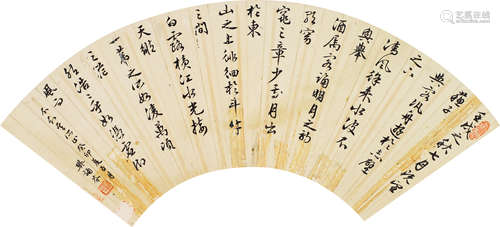 壬戌之秋七月既望
蘇子
與客泛舟遊於赤壁
之下
清風徐來水波不
興舉
酒属客誦明月之詩
歌窈
窕之章少焉月出
於東
山之上徘徊於斗牛
之間
白露横江水光接
天縱
一葦之所如凌萬頃
之茫
然浩浩乎如馮虚御
風而
不知其所止癸卯夏五月